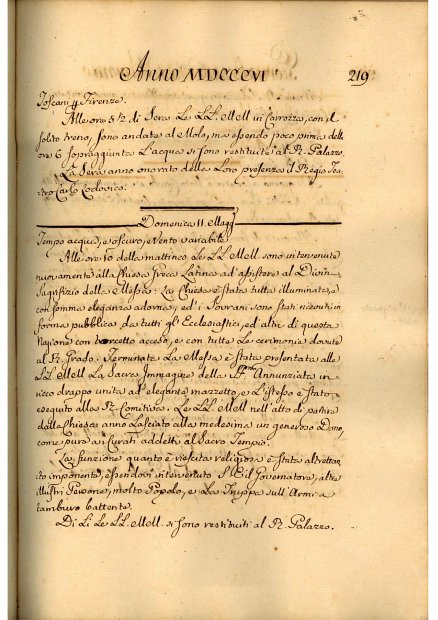 Anno MDCCCVI 219
Toscani p Firenze.
Alle ore 5 1/2 di Sera Le LL. MM in Carrozza, con il
solito treno, sono andate al Molo, ma essendo poco prima delle
ore 6 sopraggiunta L'acqua si sono restituite al R. Palazzo.
La Sera anno onorato della Loro presenza il Regio Tea-
tro Carlo Lodovico.
Domenica 11. Magg
Tempo acqua, e oscuro, e Vento variabile
Alle ore 10 della mattina Le LL MM. sono intervenute
nuovamente alla Chiesa Greca Latina ad assistere al Divin
Sagrifizio della Messa: La Chiesa è stata tutta illuminata, e
con somma eleganza adorna; ed i Sovrani sono stati ricevuti in
forma pubblica da tutti gl' Ecclesiastici, ed altri di questa
Nazione con torcetto acceso, e con tutte Le cerimonie dovute
al R. Grado. Terminata La Messa è stata presentata alle
LL MM La Sacra Immagine della Annunziata in
ricco drappo unita ad elegante mazzetto, e L'istesso è stato
eseguito alla R. Comitiva. Le LL. MM nell'atto di partire
dalla Chiesa anno Lasciato alla medesima un generoso Dono,
come pure ai Curati addetti al Sacro Tempio.
La funzione quanto è riescita religiosa è stata altrettan-
to imponente, essendovi intervenuto S. E il Governatore, altre
illustri Persone, molto Popolo, e La Truppa sull'Armi a
tamburo battente.
Di Lì Le LL. MM. si sono restituiti al R. Palazzo.